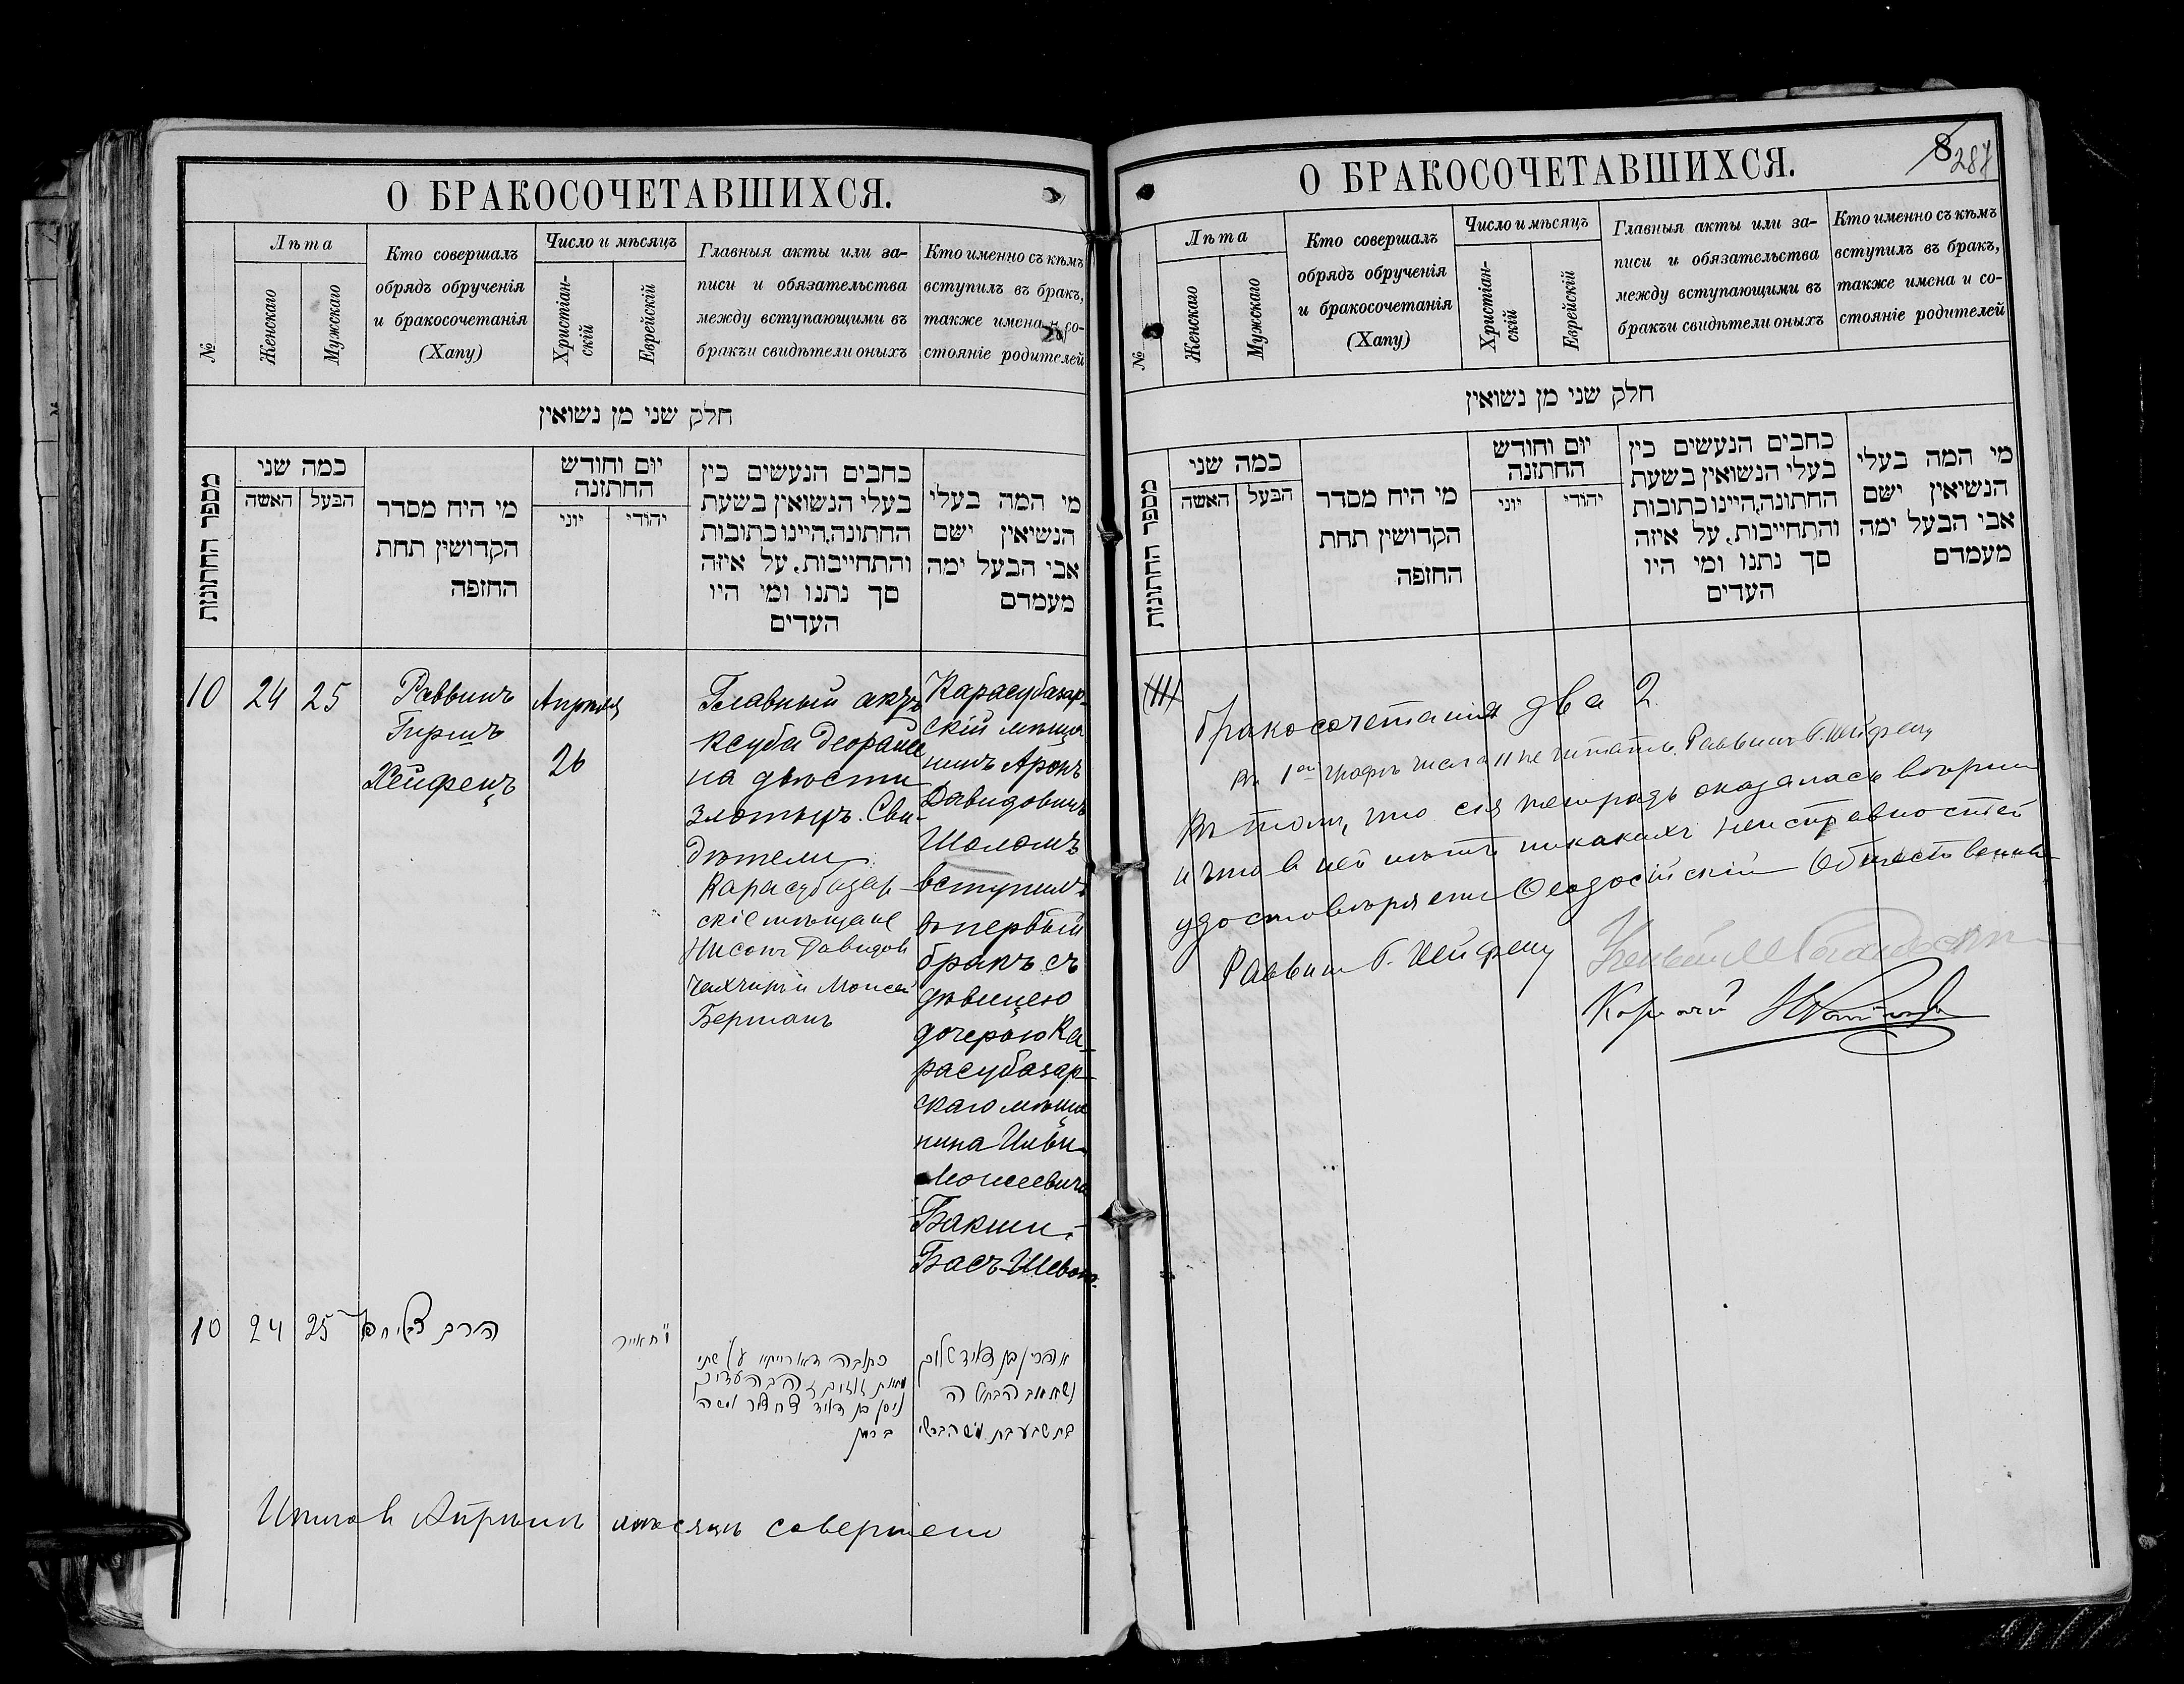 О БРАКОСОЧЕТАВШИХСЯ.
№
Лѣта
Женскаго
Мужскаго
Кто совершалъ
обрядъ обрученія
и бракосочетанія
(Хапу)
Число и мѣсяцъ
Христіан-
скій
Еврейскій
Главныя акты или за-
писи и обязательства
между вступающими въ
бракъи свидѣтели оныхъ
Кто именно съ кѣмъ
вступилъ въ бракъ,
также имена и со-
стояніе родителей
חלק שני מן נשואין
מספר החתונות
כמה שני
האשה
הבעל
מי היח מסדר
הקדושין תחת
החופה
יום וחודש
החתונה
יוני
יהודי
כתבים הנעשים כין
בעלי הנשואין בשעת
החתונה,היינוכתובות
והתחייבות, על איזה
סך נתנו ומי היו
העדים
מי המה בעלי
הנשיאין ישם
אבי הבעל ימה
מעמדם
10 24 25
Раввинъ
Гиршъ
Хейфецъ
Апрѣля
26
Главный актъ
ксуба деорайса
на двѣсти
злотыхъ. Сви-
дѣтели
Карасубазар-
скіе мѣщане
Нисонъ Давидов
Моисей
Берманъ
Карасубазар-
скій мѣща
нинъ Аронъ
Давидовичъ
Шоломъ
вступилъ
въ первый
бракъ съ
дѣвицею
дочерью Ка-
расубазар-
скаго мѣща
нина
Моисеевича
Бакши
Басъ-Шевою.
10 24 25
הרב
ח אייר
כתובה דאורייתא על שתי
מאות זוזים העדים
ניסן בן דוד משה
ברמן
אהרן בן דוד שלום
נשא הבתולה
בת שבע בת משה בקשי
Итого в Апрѣлѣ мѣсяцѣ совершено
О БРАКОСОЧЕТАВШИХСЯ.
8
287
№
Лѣта
Женскаго
Мужскаго
Кто совершалъ
обрядъ обрученія
и бракосочетанія
(Хапу)
Число и мѣсяцъ
Христіан-
скій
Еврейскій
Главныя акты или за-
писи и обязательства
между вступающими въ
бракъи свидѣтели оныхъ
Кто именно съ кѣмъ
вступилъ въ бракъ,
также имена и со-
стояніе родителей
חלק שני מן נשואין
מספר החתונות
כמה שני
האשה
הבעל
מי היח מסדר
הקדושין תחת
החופה
יום וחודש
החתונה
יוני
יהודי
כתבים הנעשים כין
בעלי הנשואין בשעת
החתונה,היינוכתובות
והתחייבות, על איזה
סך נתנו ומי היו
העדים
מי המה בעלי
הנשיאין ישם
אבי הבעל ימה
מעמדם
бракосочетанія два 2.
Въ 1ой графѣ числа 11 не читать. Раввинъ Г. Хейфецъ
Въ томъ, что сія тетрадь оказалась вѣрна
и что в ней нѣтъ никакихъ неисправностей
удостовѣряетъ Ѳеодосійскій Общественный
Раввинъ Г. Хейфецъ